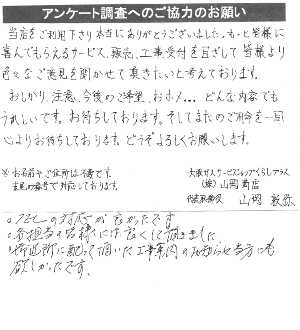 アンケート調査へのご協力のお願い
当店をご利用下さり本当にありがとうございました。もっと皆様に
喜んでもらえるサービス、販売、工事受付を目ざして皆様より
色々なご意見を聞かせて頂きたいと考えております。
おしかり、注意、今後のご希望、おホメ… どんな内容でも
うれしいです。お待ちしております。そしてまたのご用命を一同
心よりお待ちしております。どうぞよろしくお願いします。
※お名前やご住所は不要です。
大阪ガスサービスショップくらしプラス
(株)山岡商店
代表取締役 山岡
○TELの対応が良かったです
○各担当の皆様には良くして頂きました
○御近所に配って頂いた工事案内のお知らせ当方にも
欲しかったです。